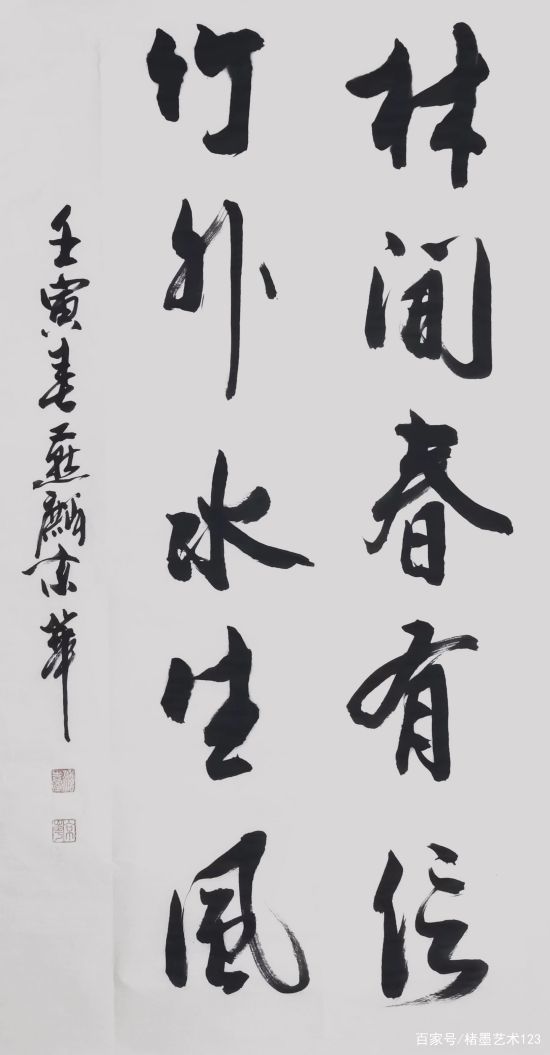 林间春有信
竹外水生風
壬寅春燕麟京華
百家号/楮墨艺术123